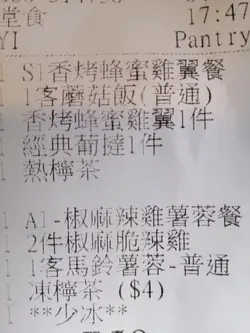 堂食 17:47
YI Pantry
1 S1香烤蜂蜜雞翼餐
1 1客蘑菇飯(普通)
1 香烤蜂蜜雞翼1件
1 經典葡撻1件
1 熱檸茶
1 A1-椒麻辣雞薯蓉餐
1 2件椒麻脆辣雞
1 1客馬鈴薯蓉-普通
1 凍檸茶 ($4)
1 **少冰**